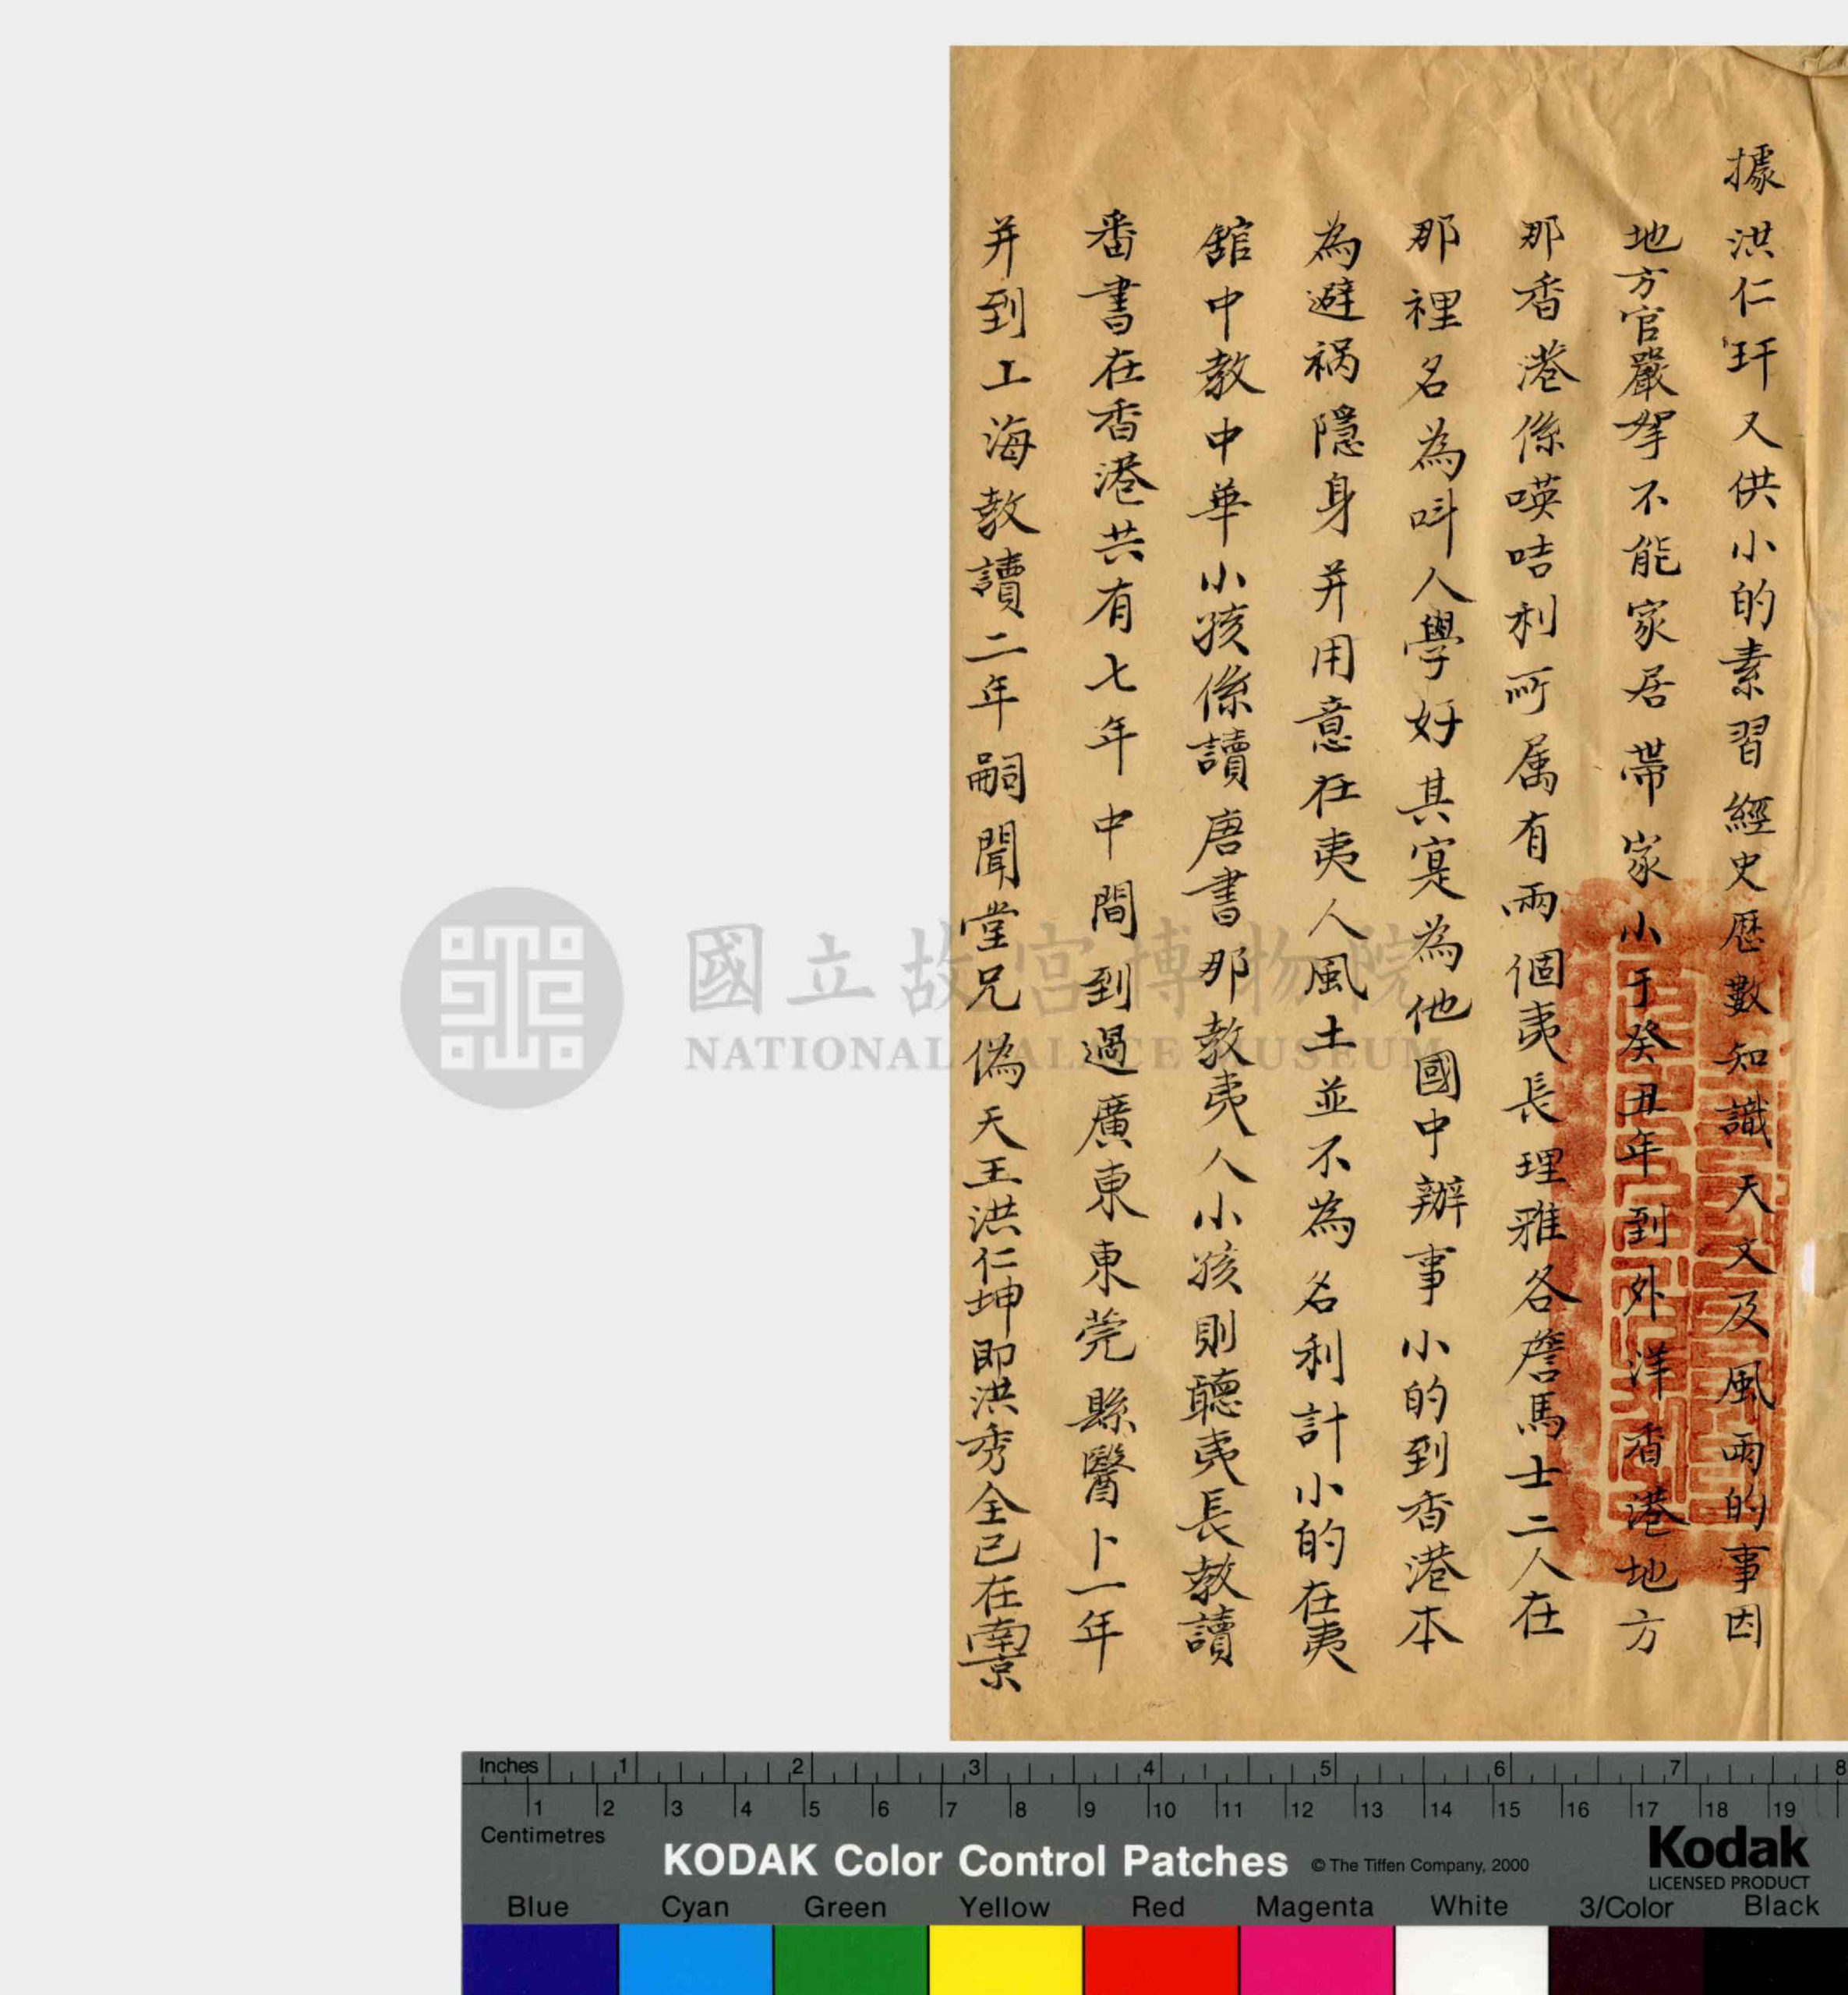 據洪仁玕又供小的素習經史歷數知識天文及風雨的事因
地方官嚴拏不能家居帶家小于癸丑年到外洋香港地方
那香港係暎咭利所属有兩個夷長理雅各詹馬士二人在
那裡名為呌人學好其寔為他國中辦事小的到香港本
為避禍隱身并用意在夷人風土並不為名利計小的在夷
舘中教中華小孩係讀唐書那教夷人小孩則聽夷長教讀
番書在香港共有七年中間到過廣東東莞縣醫卜一年
并到上海教讀二年嗣聞堂兄偽天王洪仁坤即洪秀全已在南京
國立故宮博物院
NATIONAL PALACE MUSEUM
Inches 1 2 3 4 5 6 7 8
1 2 3 4 5 6 7 8 9 10 11 12 13 14 15 16 17 18 19
Centimetres
KODAK Color Control Patches © The Tiffen Company, 2000 Kodak
LICENSED PRODUCT
Blue Cyan Green Yellow Red Magenta White 3/Color Black